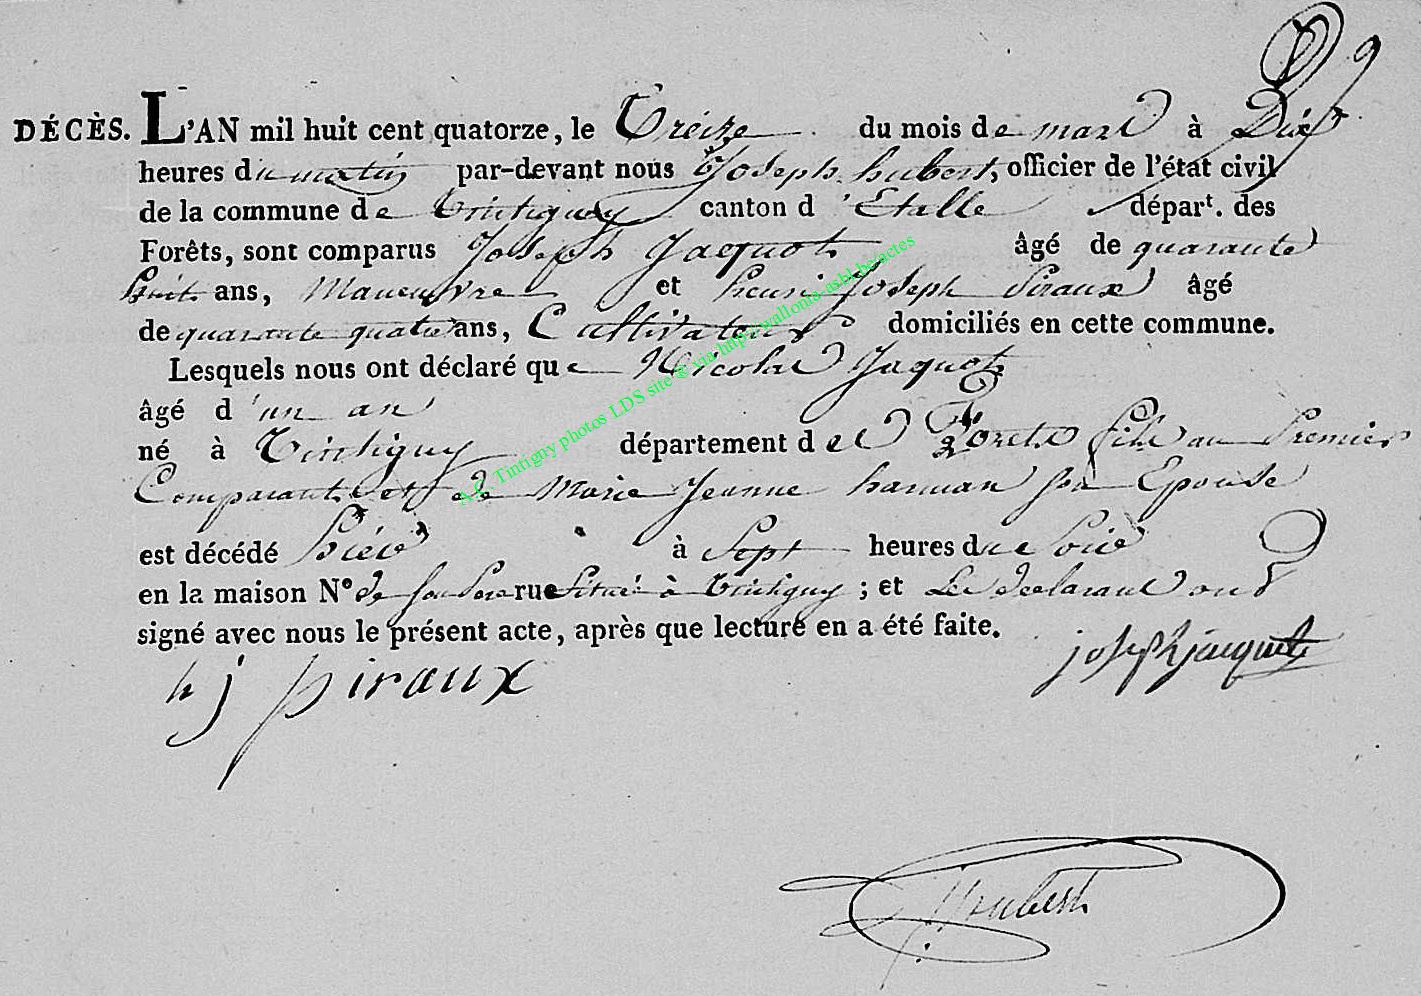 9
DÉCÈS. L'AN mil huit cent quatorze, le Treize du mois de mars à Dix
heures du matin par-devant nous Joseph hubert, officier de l'état civil
de la commune de Tintigny canton d'Etalle départ. des
Forêts, sont comparus Joseph Jacquot âgé de quarante
huit ans, Maneuvre et henri Joseph Piraux âgé
de quarante quatre ans, Cultivateur domiciliés en cette commune.
Lesquels nous ont déclaré que Nicolas Jaquot
âgé d'un an
né à Tintigny département des Forets fils au Premier
Comparant et de Marie Jeanne harman son Epouse
est décédé hièr à Sept heures du Soir
en la maison N° de son Pere rue Situé à Tintigny ; et Les declarant ont
signé avec nous le présent acte, après que lecture en a été faite.
h j piraux joseph jacquot
J hubert
A.C. Tintigny photos LDS site @ via http://wallonia-asbl.be/actes